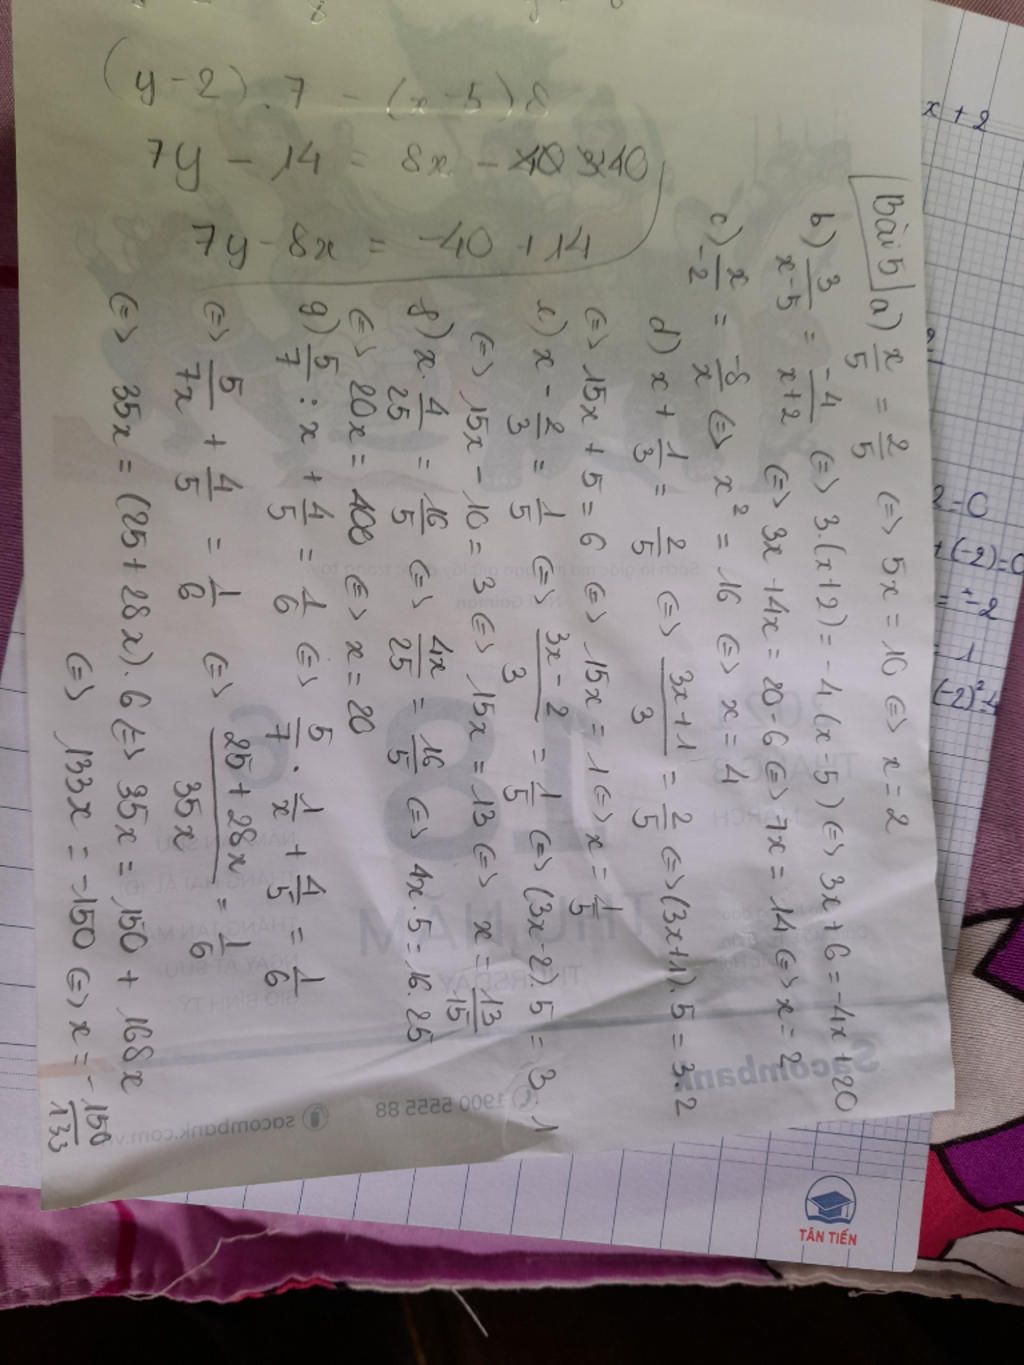 (y-2).7 - (x-5)8
7y - 14 = 8x - 40
7y - 8x = -40 + 14
Bài 5 a) x/5 = 2/5 <=> 5x = 10 <=> x = 2
b) 3/x-5 = -4/x+2 <=> 3.(x+2) = -4(x-5) <=> 3x+6 = -4x+20
<=> 3x+4x = 20-6 <=> 7x = 14 <=> x = 2
c) x/-2 = -8/x <=> x² = 16 <=> x = 4
d) x + 1/3 = 2/5 <=> 3x+1/3 = 2/5 <=> (3x+1).5 = 3.2
<=> 15x + 5 = 6 <=> 15x = 1 <=> x = 1/5
e) x - 2/3 = 1/5 <=> 3x-2/3 = 1/5 <=> (3x-2).5 = 3.1
<=> 15x - 10 = 3 <=> 15x = 13 <=> x = 13/15
f) x. 4/25 = 16/5 <=> 4x/25 = 16/5 <=> 4x.5 = 16.25
<=> 20x = 400 <=> x = 20
g) 5/7 : x + 4/5 = 1/6 <=> 5/7 . 1/x + 4/5 = 1/6
<=> 5/7x + 4/5 = 1/6 <=> 25+28x/35x = 1/6
<=> 35x = (25+28x).6 <=> 35x = 150 + 168x
<=> 133x = -150 <=> x = -150/133
x + 2
2=0
+(-2)=0
= -2
1
(-2)²-4
18
THỨ NĂM
THURSDAY
MARCH
Sacombank
1900 5555 88
sacombank.com.vn
TÂN TIẾN